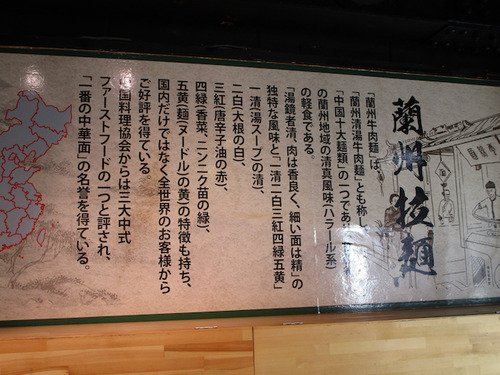 蘭州拉麺
「蘭州牛肉麺」は、
「蘭州清湯牛肉麺」とも称し、
「中国十大麺類」の一つであり
の蘭州地域の清真風味(ハラール系)
の軽食である。
「湯鏡者清、肉は香良く、細い面は精」の
独特な風味と「一清二白三紅四緑五黄」
一清(湯スープ)の清)、
二白(大根の白)、
三紅(唐辛子油の赤)、
四緑(香菜、ニンニク苗の緑)、
五黄(麺(ヌードル)の黄)の特徴も持ち、
国内だけではなく全世界のお客様から
ご好評を得ている。
中国料理協会からは三大中式
ファーストフードの一つと評され、
「一番の中華面」の名誉を得ている。